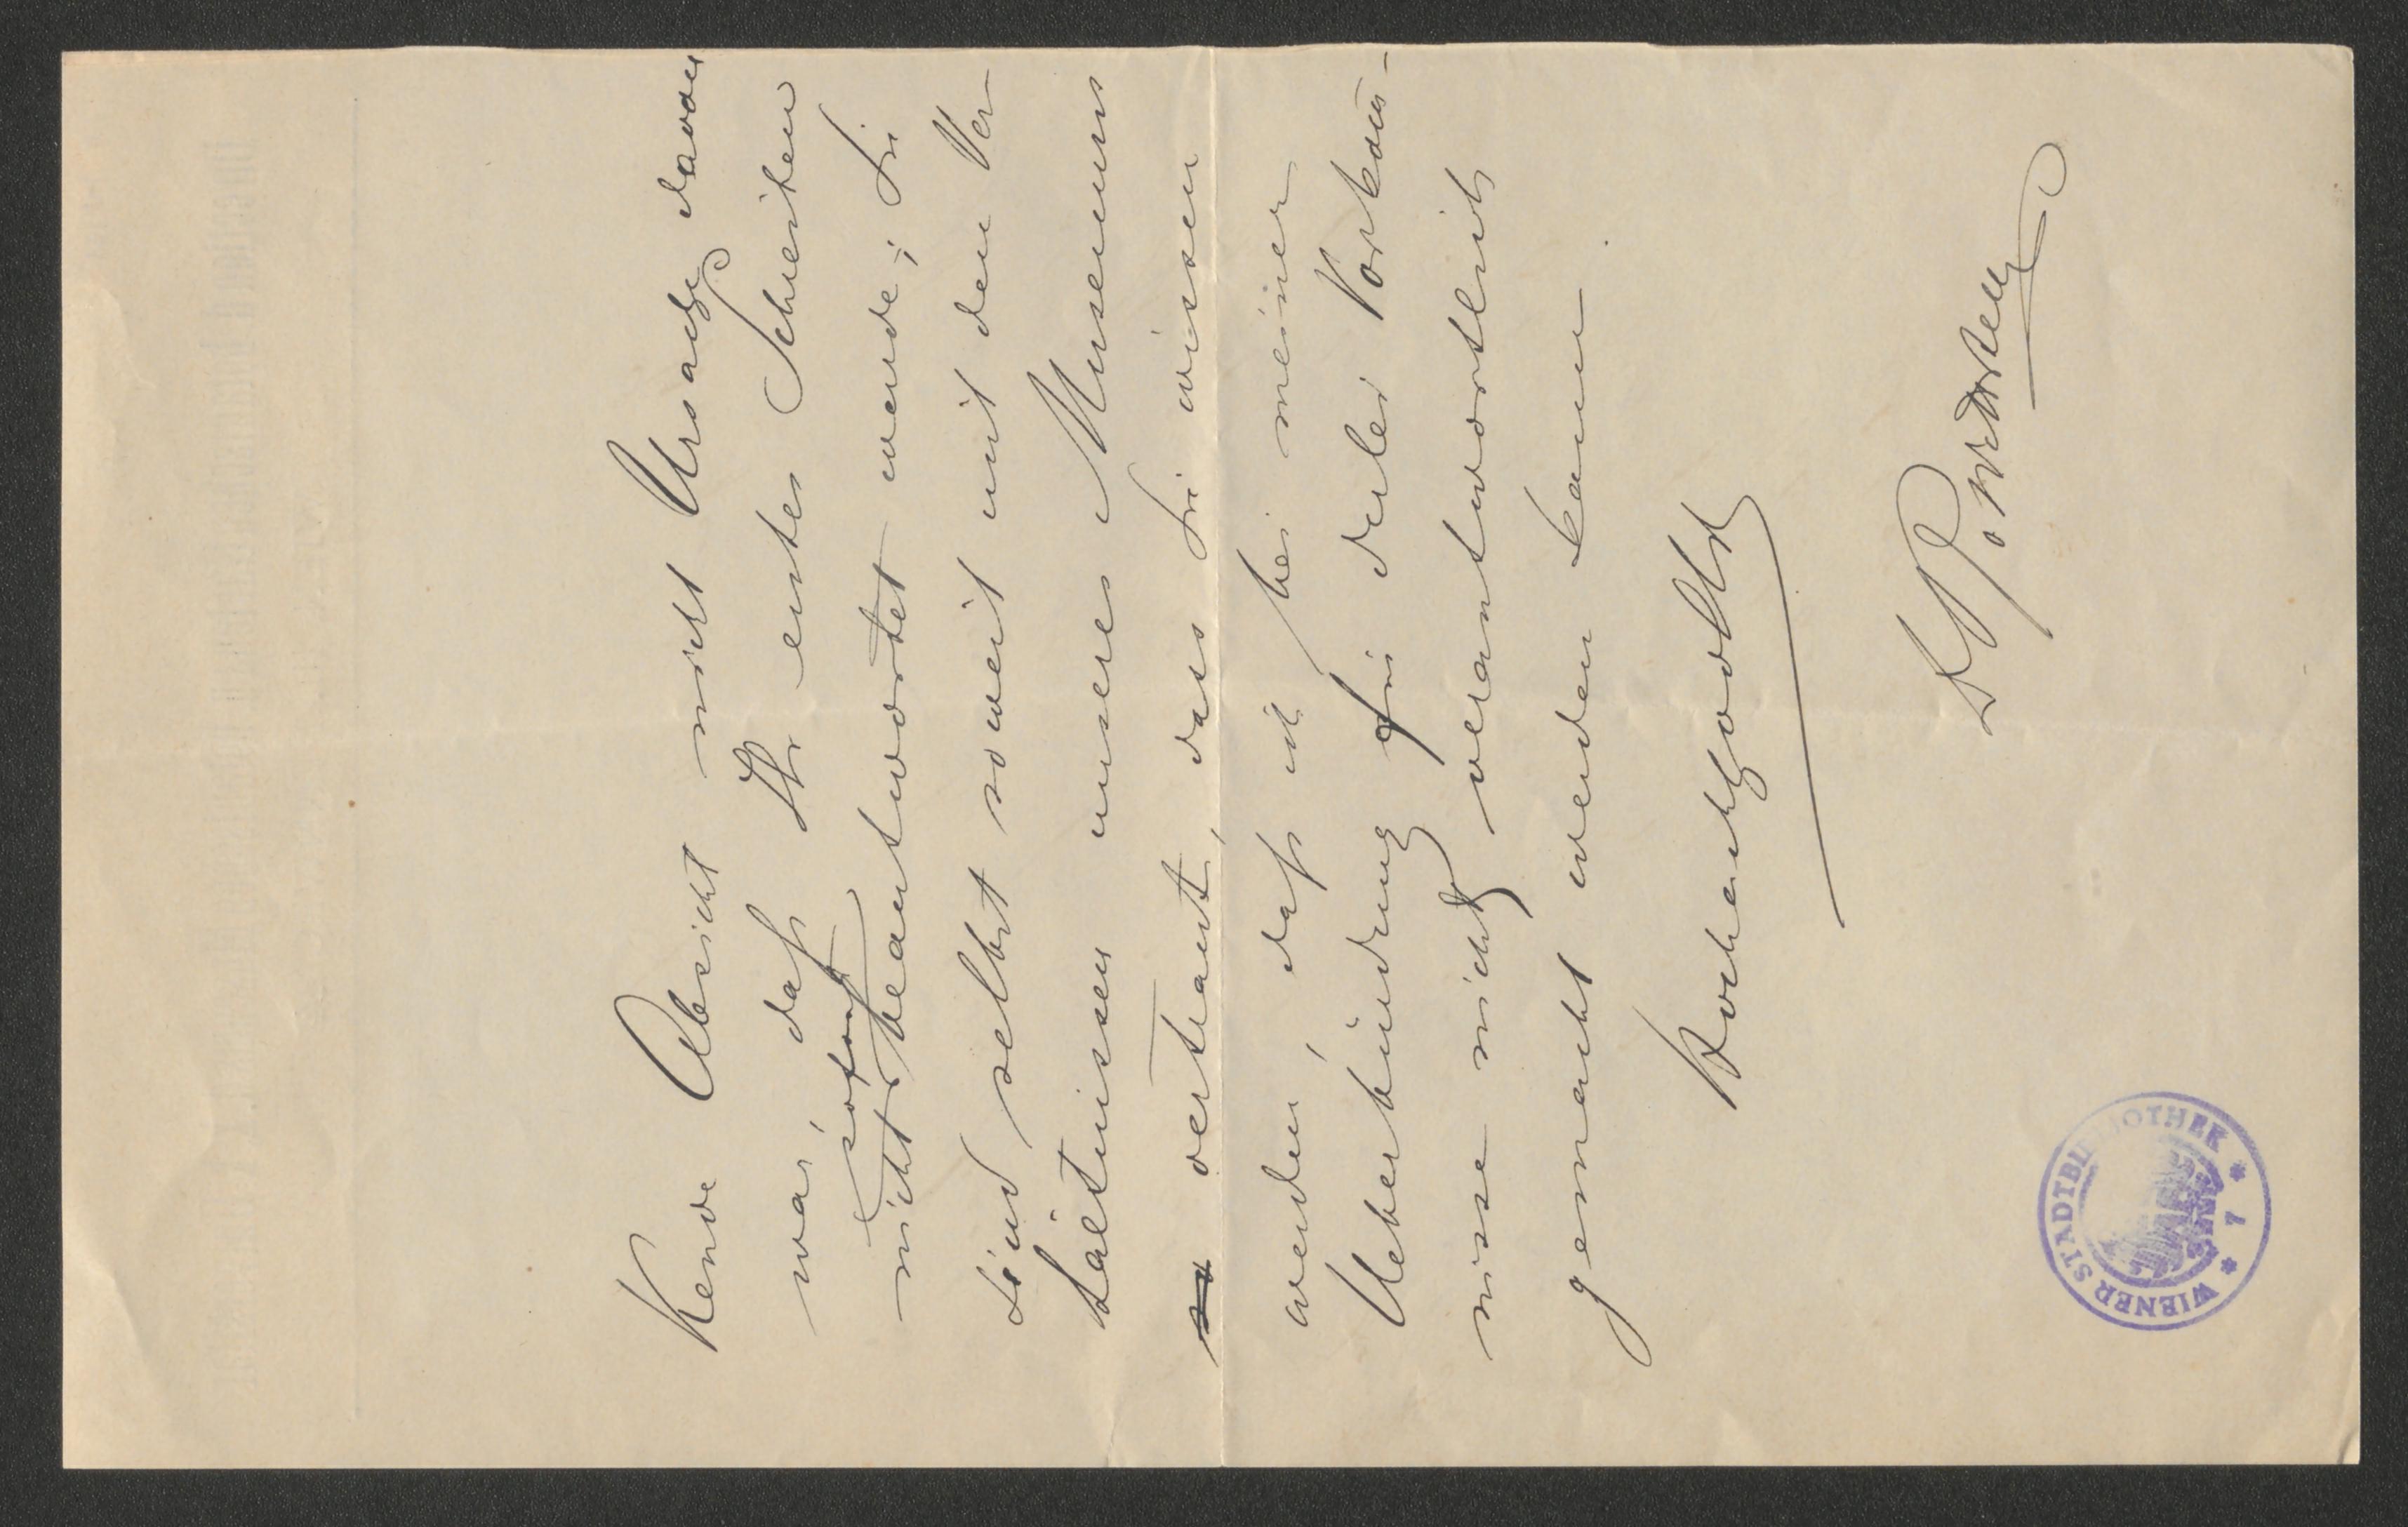 Kende Absicht nicht Ursache davon
war, daß Ihr erstes Schreiben
sofort
nicht beantwortet wurde; Sie
sind selbst soweit mit den Ver
hältnissen unseres Museums
vertraut, dass Sie wissen
werden, daß ich bei meiner
Ueberbürdung für derlei Vorkom̅-
nisse nicht verantwortlich
gemacht werden kann.
Hochachtungsvollst
WIENER STADTBIBLIOTHEK * 7 *